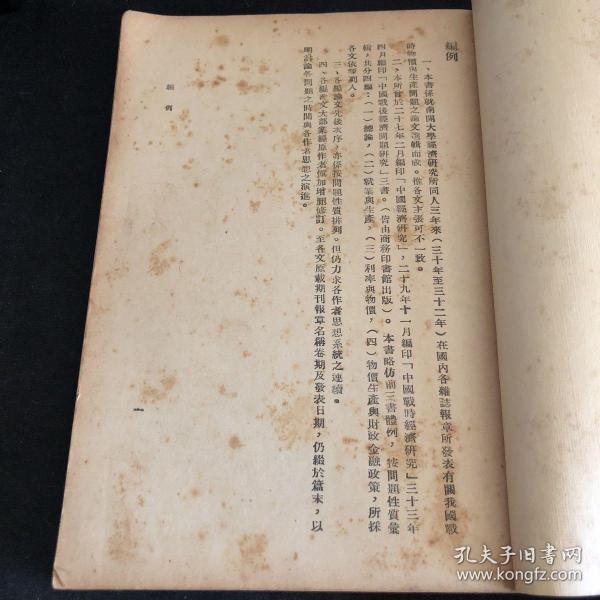 編例
一、本書係就南開大學經濟研究所同人三年來（三十年至三十二年）在國內各雜誌報章所發表有關我國戰
時物價與生產問題之論文選輯而成。惟各文主張可不一致。
二、本所曾於二十七年二月編印「中國經濟研究」，二十九年十一月編印「中國戰時經濟研究」三十三年
四月編印「中國戰後經濟問題研究」三書。（皆由商務印書館出版）。本書略仿前三書體例，按問題性質彙
輯，共分四編：（一）總論，（二）就業與生產，（三）利率與物價，（四）物價生產與財政金融政策，所採
各文依類列入。
三、各編論文先後次序，亦係按問題性質排列。但仍力求各作者思想系統之連續。
四、各編論文大部業經原作者酌加增刪修訂。至各文原載期刊報章名稱卷期及發表日期，仍綴於篇末，以
明討論各問題之時間與各作者思想之演進。
編例
一
孔夫子旧书网
www.kongfz.com